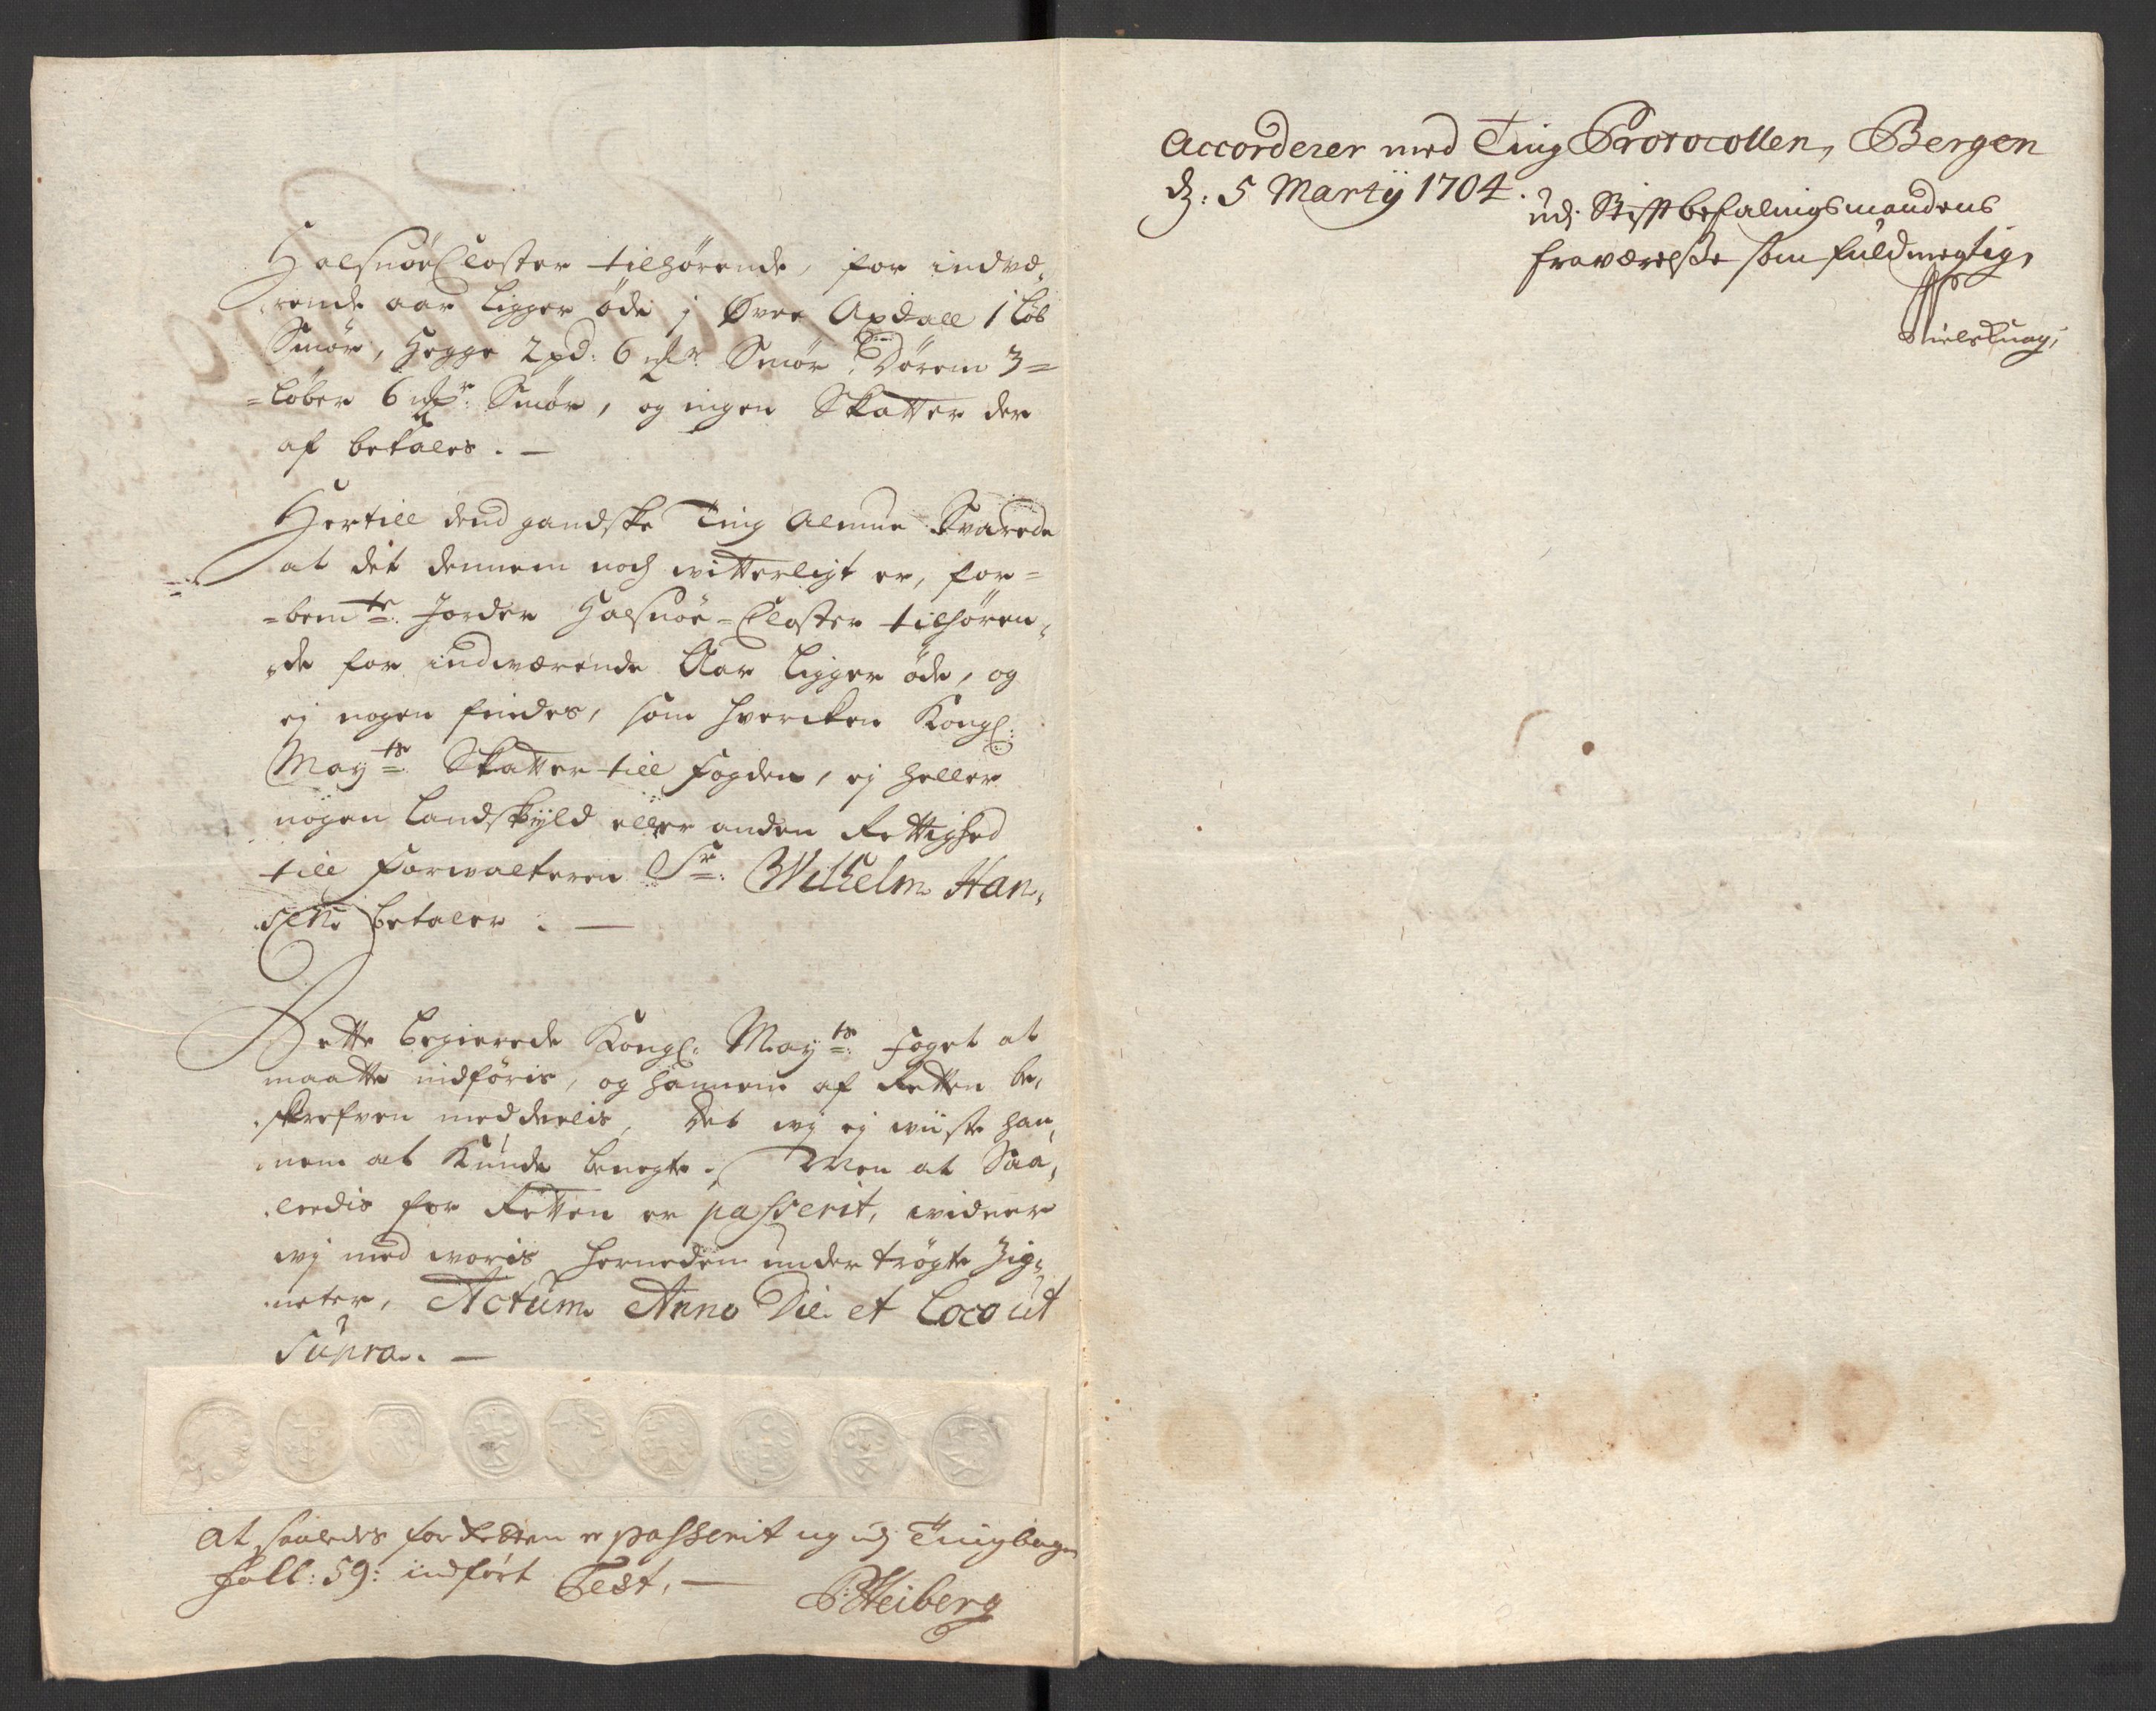 Halsnöe Closter tilhørende, for indvæ,
,rende aar ligger öde j Øvre Axdall 1 løb
Smör, Hegge 2 pd: 6 mkr: Smör, Dörem 3=
=löber 6 mkr: Smör, og ingen Skatter der
af betales. —
Hertill dend gandske Ting Almue Svarede
at dét dennem noch witterligt er, for=
=bemte: Jorder Halsnöe=Closter tilhören,
,de for indwærende Aar ligger öde, og
ej nogen findes, som hvercken Kongl:
Mayts: Skatter till fogden, ej heller
nogen Landskÿld eller anden Rettighed
till Forwalteren Sr: Wilhelm Han,
,sen betaler. —
Dette begierede Kongl: Mayts: foget at
maatte indföris, og hannem af Retten be,
,skrefven meddeelis, Det wj ej wiste han,
,nem at Kunde benegte. Men at Saa,
,leedis for Retten er passerit, widner
wj med woris hernedem under trögte Zig,
,neter, Actum Anno Die et Loco ut
Supra. —
At saaledes for Retten er passerit og udj Tingbogen
foll: 59: indfört Test, —
P: Heiberg
Accorderer med Ting Protocollen, Bergen
d: 5 Martij 1704.
udj Stiftbefalingsmandens
fraværelsse som fuldmegtig,
Niels Knag,